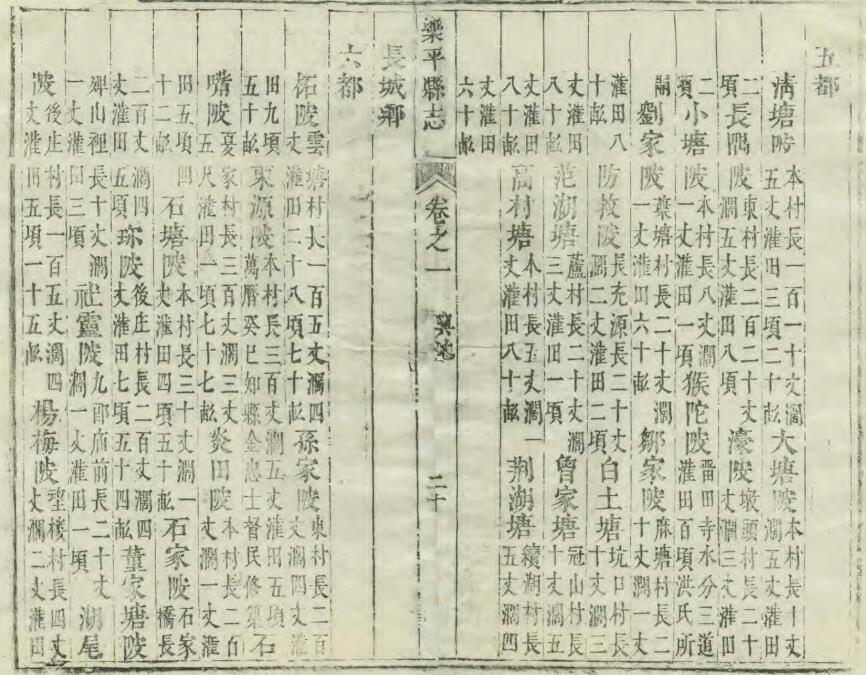 五都
清塘陂本村長一百一十丈濶五丈灌田三頃二十畝大塘陂本村長十丈濶五丈灌田
二頃長隅陂東村長二百二十丈濶五丈灌田八頃濠陂墩頭村長二十丈濶三丈灌田
二頃小塘陂本村長八丈濶一丈灌田一頃猴陀陂畱田寺水分三道灌田百頃洪氏所
開劉家陂葉塘村長二十丈濶一丈灌田六十畝鄒家陂麻塘村長二十丈濶一丈
灌田八十畝防救陂長充源長二十丈濶二丈灌田二頃白土塘坑口村長十丈濶三
丈灌田八十畝范湖塘蘆村長二十丈濶三丈灌田一頃曾家塘冠山村長十丈濶五
丈灌田八十畝高村塘本村長五丈濶一丈灌田八十畝荆湖塘續湖村長五丈濶四
丈灌田六十畝
樂平縣志 卷之一 輿地 二十
長城鄉
六都
柘陂雲塘村長一百五丈濶四丈灌田二十八頃七十畝孫家陂東村長二百丈濶四丈灌
田九頃五十畝東源陂本村長三百丈濶五丈灌田五頃萬曆癸巳知縣金忠士督民修築石
嘴陂夏家村長三百丈濶三丈五尺灌田一頃七十七畝炎田陂本村長二百丈濶一丈灌
田五頃四十二畝石塘陂本村長三十丈濶一丈灌田四頃五十畝石家陂石家橋長
二百丈濶四丈灌田五頃陂後庄村長二百丈濶四丈灌田七頃五十四畝董家塘陂
山裡長十丈濶一丈灌田三頃社靈陂九郎庙前長二十丈濶一丈灌田一頃湖尾
陂後庄村長一百五丈濶四丈灌田五頃一十五畝楊梅陂望楼村長四丈濶二丈灌田